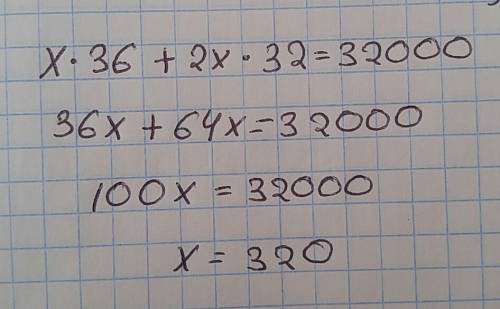 x · 36 + 2x · 32 = 32000
36x + 64x = 32000
100x = 32000
x = 320